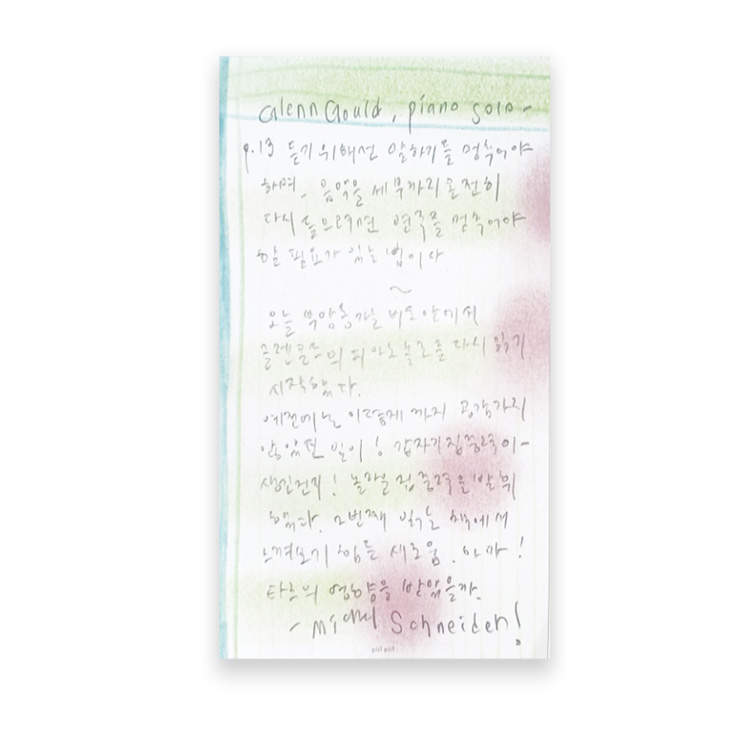 Glenn Gould, piano solo -
p.13 듣기 위해선 말하기를 멈추어야
하며, 음악을 세부까지 온전히
다시 들으려면 연주를 멈추어야
할 필요가 있는 법이다.
~
오늘 가는 버스 안에서
글렌굴드의 피아노솔로를 다시 읽기
시작했다.
예전에는 이렇게 까지 공감가지
않았던 말이! 갑자기 집중력이-
생인건지! 놀라운 집중력을 발휘
했다. 2번째 읽는 책에서
느껴보기 힘든 새로움. 아까!
타르의 영향을 받았을까.
- Michel Schneider!